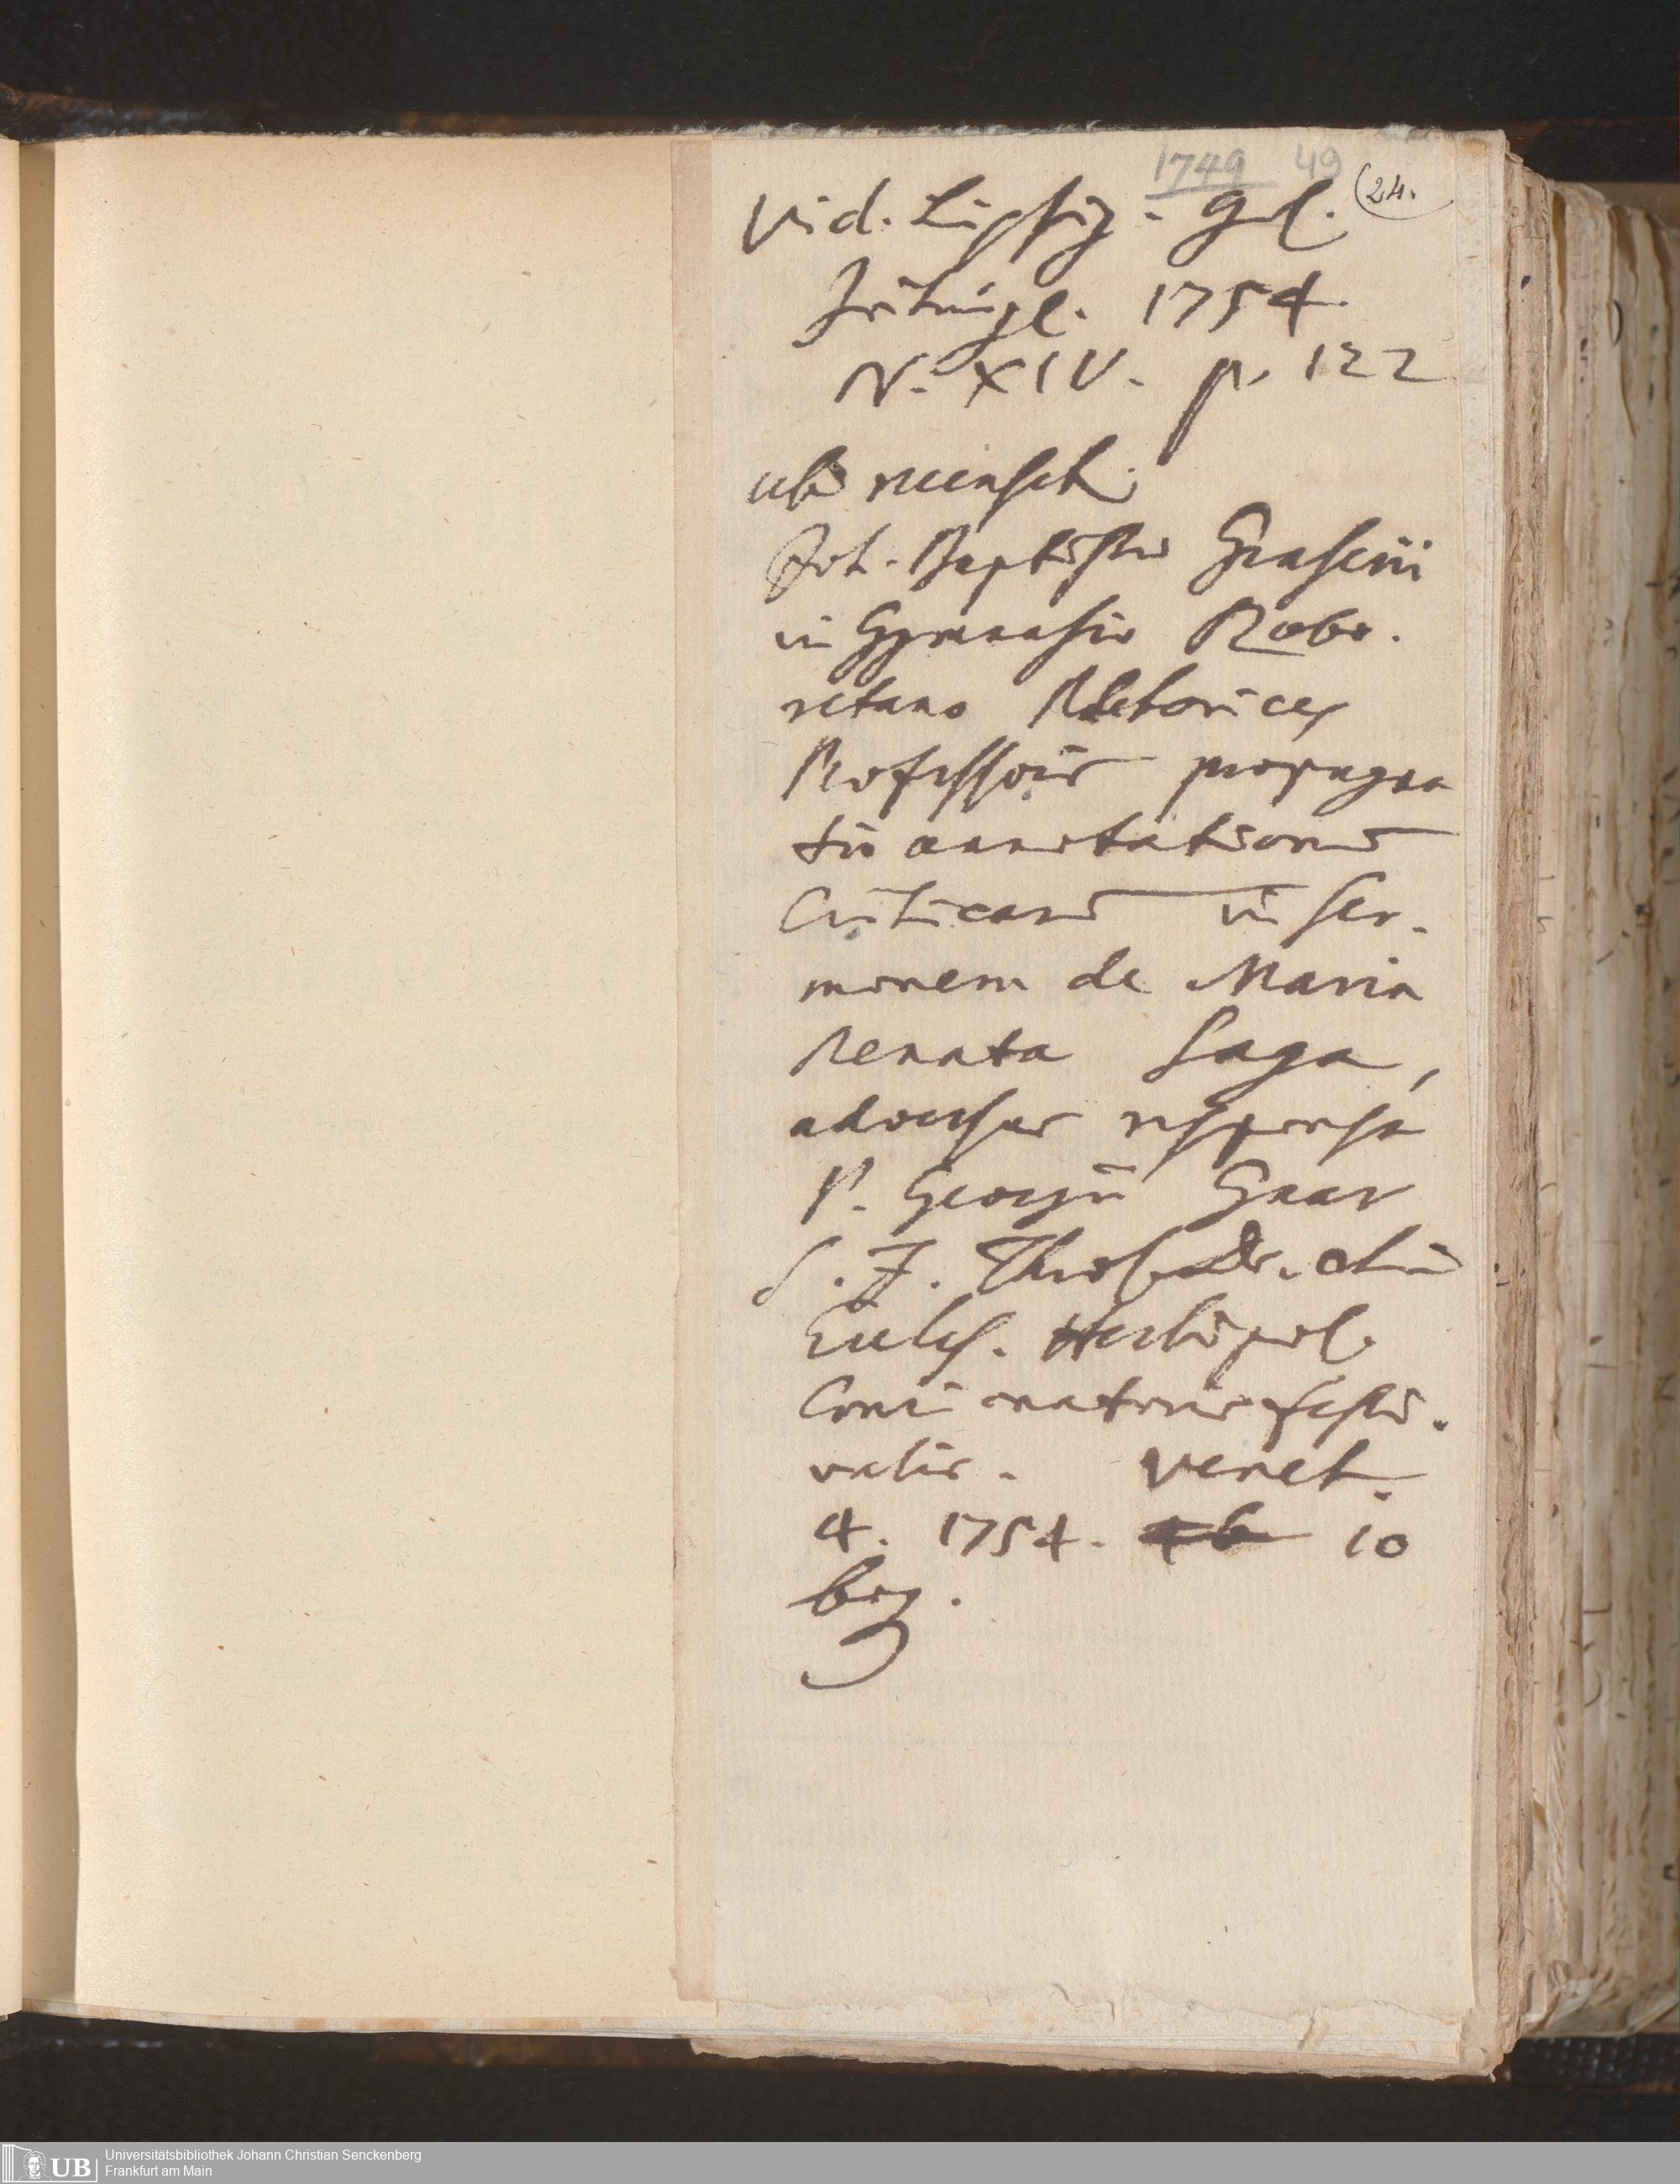 1749 49
(24.
Vid. Leipzig. gel.
Zeitunge. 1754
N. XIV. p. 122
ubi recenset.
Joh. Baptistae Graserii
in Gymnasio Robo.
retano Rhetorices
Professoris propugna
tio annotationum
Criticarum in ser.
monem de Maria
Renata Saga,
adversus responsa
P. Georgii Gaar
S. J. Theol. Dr. olim
Eccles. Herbipol.
Concionatoris festi.
valis. Venet.
4. 1754. 10
bog.
UB
Universitätsbibliothek Johann Christian Senckenberg
Frankfurt am Main